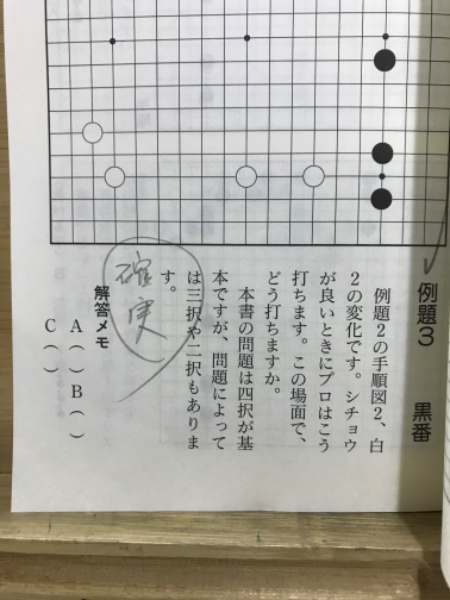 例題3　黒番
例題2の手順図2、白
2の変化です。シチョウ
が良いときにプロはこう
打ちます。この場面で、
どう打ちますか。
本書の問題は四択が基
本ですが、問題によって
は三択や二択もありま
す。
確実
解答メモ
A（　）B（　）
C（　）